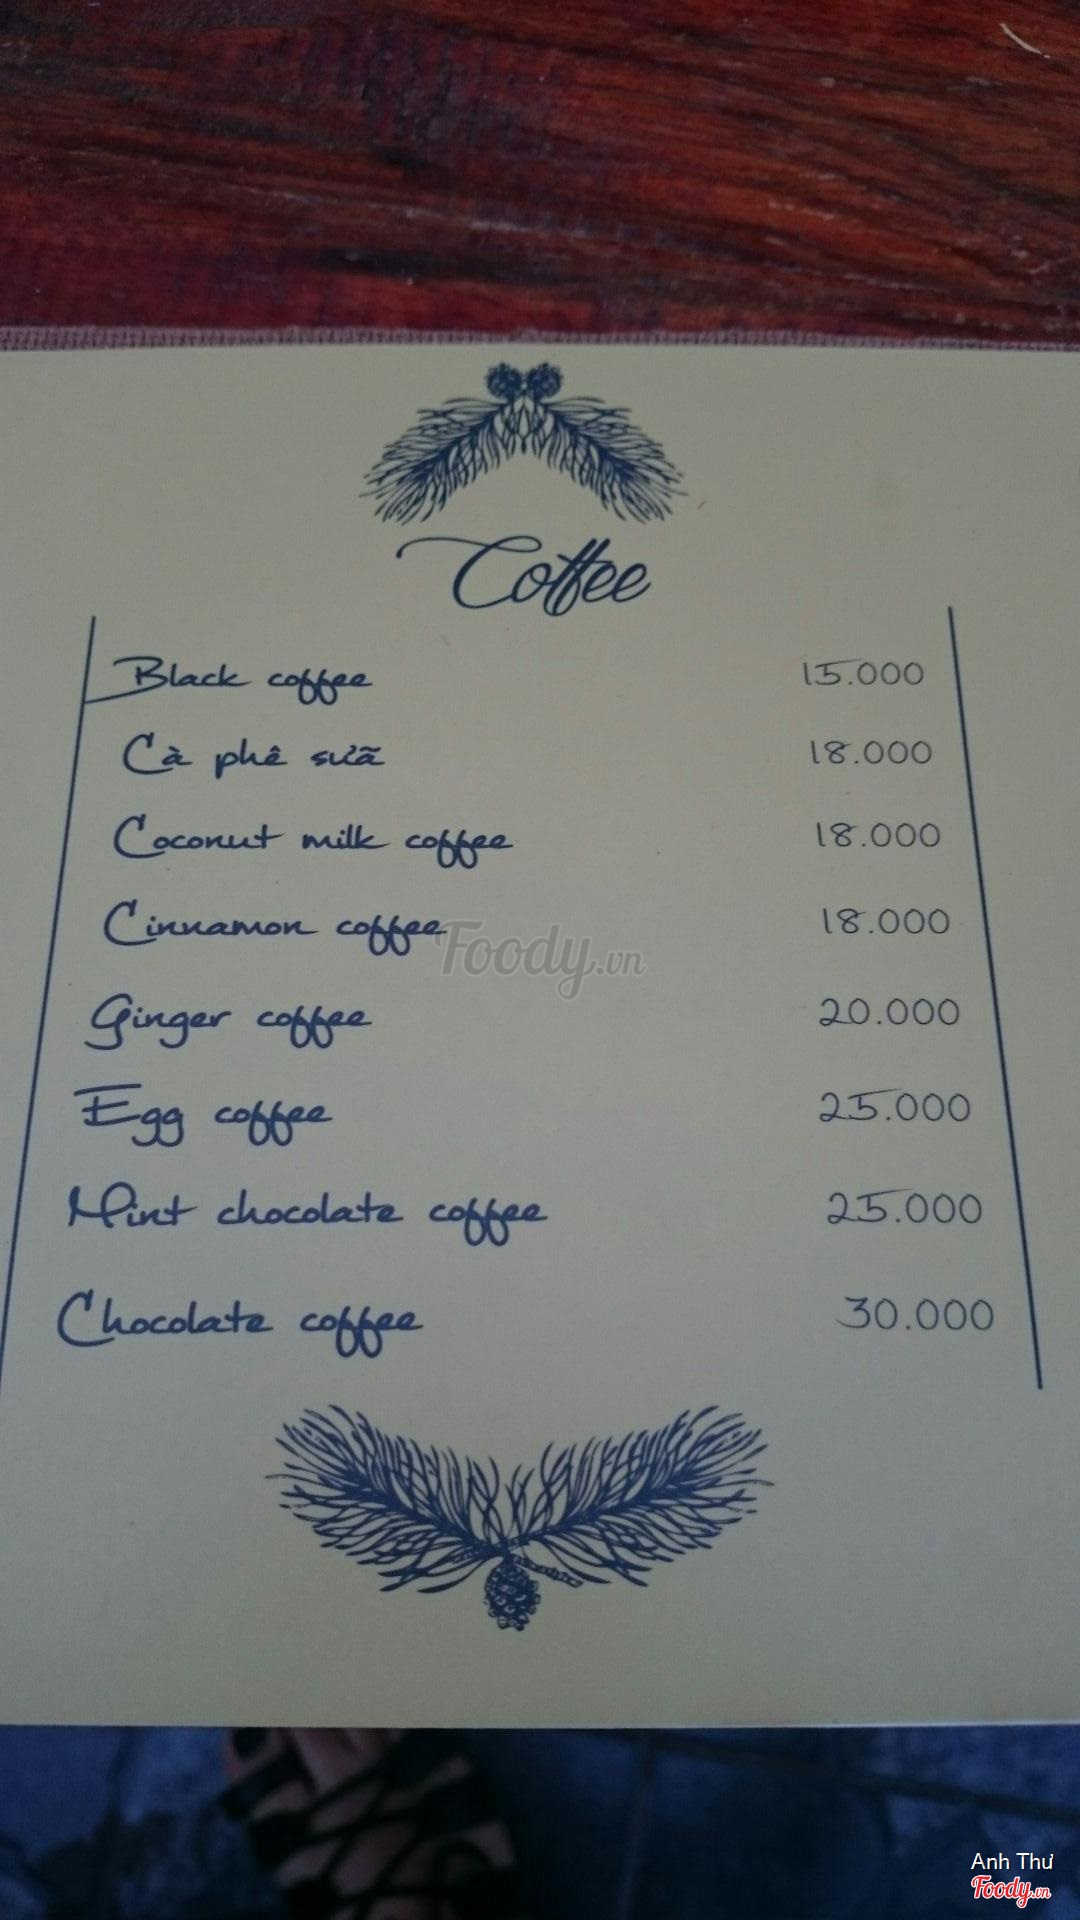 Coffee
Black coffee 15.000
Cà phê sữa 18.000
Coconut milk coffee 18.000
Cinnamon coffee 18.000
Ginger coffee 20.000
Egg coffee 25.000
Mint chocolate coffee 25.000
Chocolate coffee 30.000
Foody.vn
Anh Thư
Foody.vn